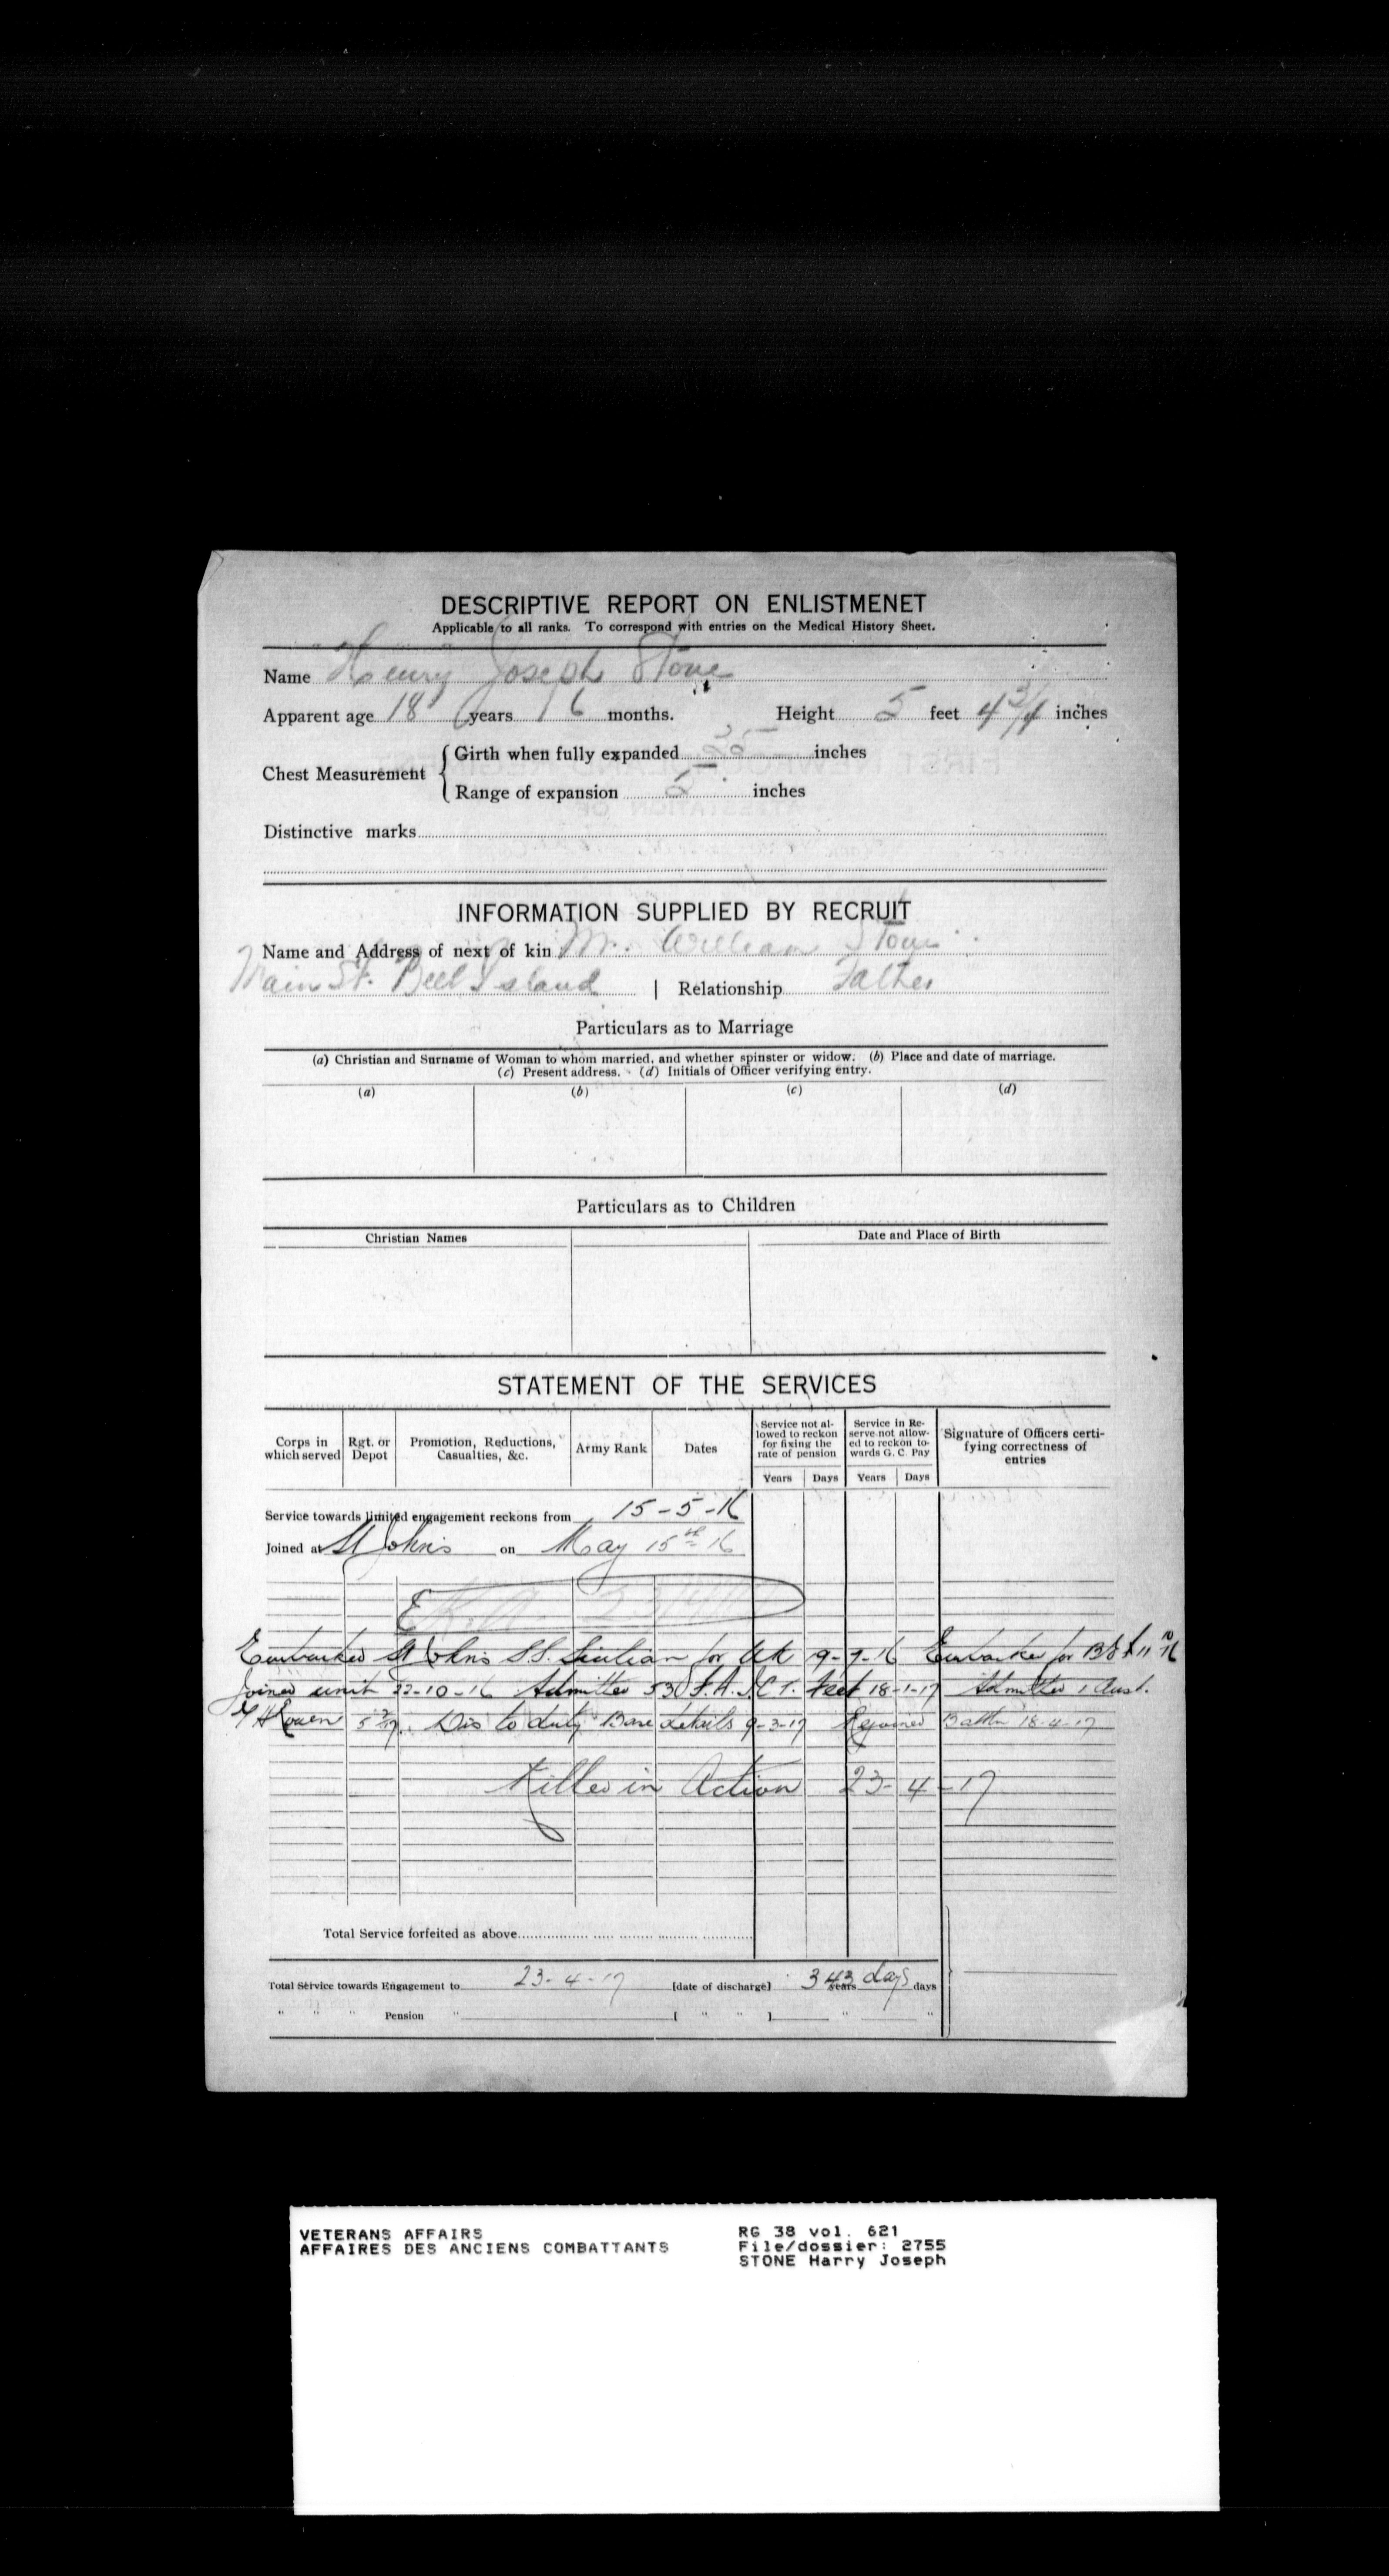 DESCRIPTIVE REPORT ON ENLISTMENET
Applicable to all ranks. To correspond with entries on the Medical History Sheet.
Name Henry Joseph Stone
Apparent age 18 years 6 months. Height 5 feet 4 3/4 inches
Chest Measurement { Girth when fully expanded 35 inches
Range of expansion 5 inches
Distinctive marks
INFORMATION SUPPLIED BY RECRUIT
Name and Address of next of kin Mr. William Stone
Main St. Bell Island | Relationship Father
Particulars as to Marriage
(a) Christian and Surname of Woman to whom married, and whether spinster or widow. (b) Place and date of marriage.
(c) Present address. (d) Initials of Officer verifying entry.
(a) (b) (c) (d)
Particulars as to Children
Christian Names Date and Place of Birth
STATEMENT OF THE SERVICES
Corps in which served Rgt. or Depot Promotion, Reductions, Casualties, &c. Army Rank Dates Service not allowed to reckon for fixing the rate of pension Service in Reserve not allowed to reckon towards G. C. Pay Signature of Officers certifying correctness of entries
Years Days Years Days
Service towards limited engagement reckons from 15-5-16
Joined at St Johns on May 15th 16
Embarked St Johns S.S. Sicilian for UK 19-7-16 Embarked for B.E.F. 11 10 16
Joined unit 22-10-16 Admitted 53 F.A. I.C.T. Feet 18-1-17 Admitted 1 Aust.
G H Rouen 5 2 17. Dis to duty Base details 9-3-17 Rejoined Battn 18-4-17
Killed in Action 23-4-17
Total Service forfeited as above
Total Service towards Engagement to 23-4-17 [date of discharge] 343 years days days
" " " Pension " [ " " ] " "
VETERANS AFFAIRS RG 38 vol. 621
AFFAIRES DES ANCIENS COMBATTANTS File/dossier: 2755
STONE Harry Joseph